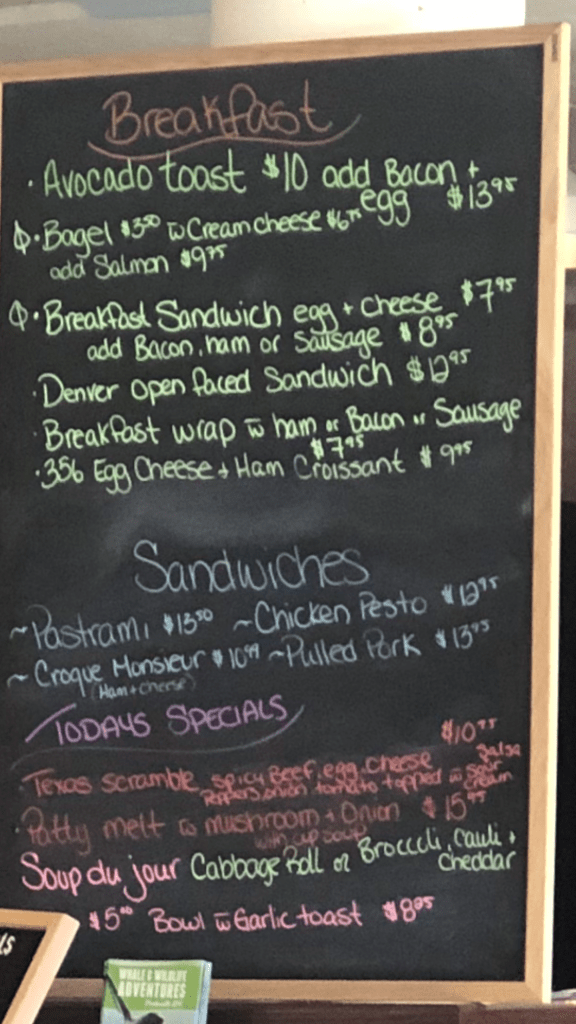 Breakfast
· Avocado toast $10 add Bacon +
egg $13.95
· Bagel $3.50 w Cream cheese $6.75
add Salmon $9.75
· Breakfast Sandwich egg + cheese $7.95
add Bacon, ham or Sausage $8.95
· Denver open faced Sandwich $12.95
· Breakfast wrap w ham or Bacon or Sausage
$7.95
· 356 Egg Cheese + Ham Croissant $9.95
Sandwiches
~Pastrami $13.50 ~Chicken Pesto $12.95
~Croque Monsieur $10.99 ~Pulled Pork $13.95
(Ham + cheese)
TODAYS SPECIALS
· Texas scramble spicy Beef, egg, cheese $10.95
peppers, onion tomato topped w salsa
sour cream
· Patty melt w mushroom + Onion $15.95
with cup soup
Soup du jour Cabbage Roll or Broccoli, Cauli +
cheddar
$5.00 Bowl w Garlic toast $8.95
WHALE & WILDLIFE
ADVENTURES